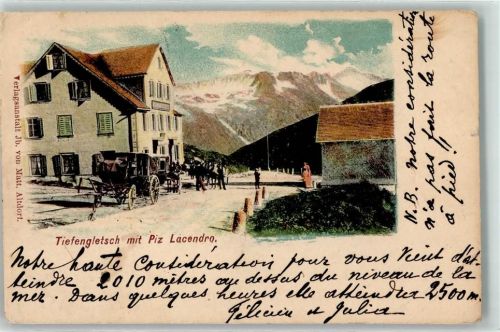 Verlagsanstalt Jb. von Matt, Altdorf.
Tiefengletsch mit Piz Lucendro.
Notre haute Considération pour vous vient d'at-
teindre 2010 mètres au dessus du niveau de la
mer. Dans quelques heures elle atteindra 2500 m.
Félicien et Julia
N.B. Notre considération
n'a pas fait la route
à pied!